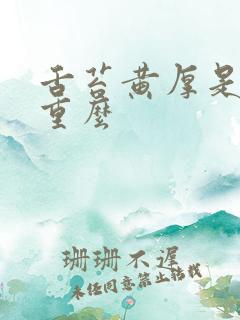 舌苔黄厚是
重麽
珊珊不遲
未经同意禁止转载